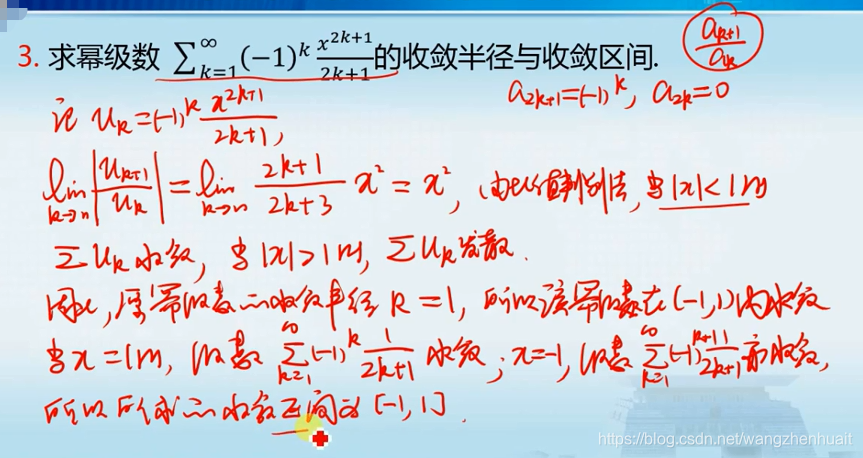 3. 求幂级数 ∑_{k=1}^{∞} (−1)^k x^{2k+1}/(2k+1) 的收敛半径与收敛区间. a_{k+1}/a_k
a_{2k+1}=(-1)^k, a_{2k}=0
记 u_k=(-1)^k x^{2k+1}/(2k+1),
lim_{k→n} |u_{k+1}/u_k| = lim_{k→n} (2k+1)/(2k+3) x² = x², 由比值判别法, 当|x|<1时
∑u_k收敛, 当|x|>1时, ∑u_k发散.
因此, 原幂级数的收敛半径R=1, 所以该幂级数在(-1,1)内收敛
当x=1时, 级数 ∑_{k=1}^{∞} (-1)^k 1/(2k+1) 收敛; x=-1, 级数 ∑_{k=1}^{∞} (-1)^{k+1} 1/(2k+1) 亦收敛,
所以所求的收敛区间为[-1,1].
https://blog.csdn.net/wangzhenhuait